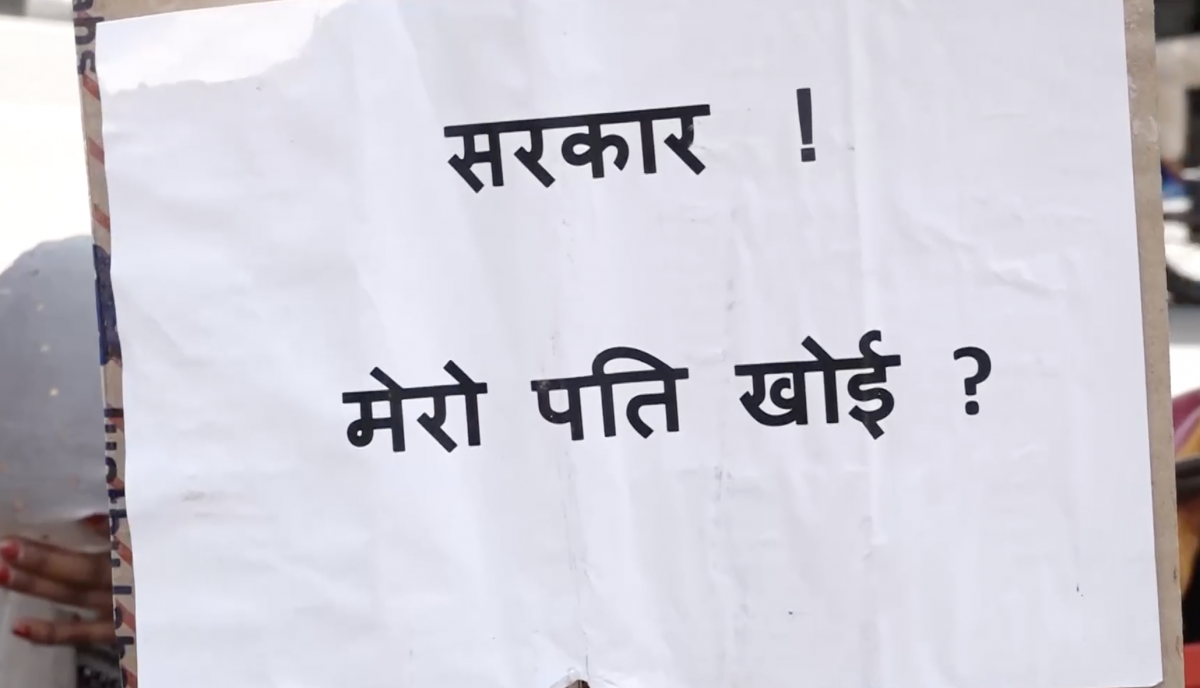 सरकार !
मेरो पति खोई ?